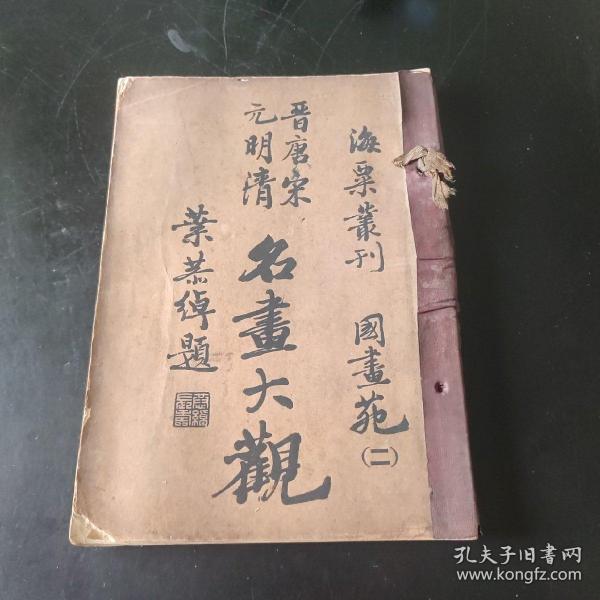 海粟叢刊 國畫苑(二)
晋唐宋
元明清
名畫大觀
葉恭綽題
孔夫子旧書网
www.kongfz.com